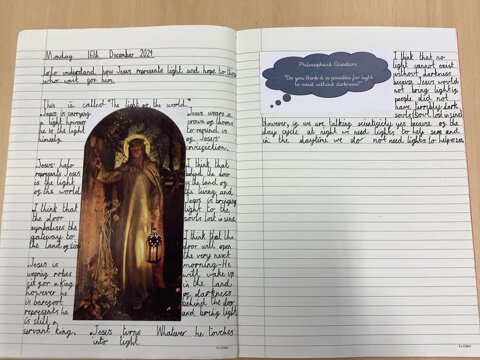 Monday 16th December 2024
to understand how Jesus represents light and hope to those
who wait for him.
This is called "The light of the world."
Jesus is carrying
a light however
he is the light
himself.
Jesus' halo
represents Jesus
is the light
of the world.
I think that
the door
symbalises the
gateway to
the land of sin
Jesus is
wearing robes
for a king
however he
is barefoot
represents he
is still a
servant king.
Jesus wears a
crown of thorns
to remind us
of Jesus'
I think that
behind the door
is the land of
the living and
Jesus is bringing
light to the
souls lost in sin.
I think that the
door will open
the very next
morning. He
will wake up
in the land
of darkness
behind the door
and bring light
Jesus turns Whatever he touches
into light.
Philosophical Question:
"Do you think it is possible for light
to exist without darkness?"
I think that no
light cannot exist
without darkness
because Jesus would
not bring light if
people did not
have terribly dark
souls (souls lost in sin)
However, if we are talking scientificly yes because of the
day cycle at night we need lights to help see and
in the daytime we do not need lights to help us see.